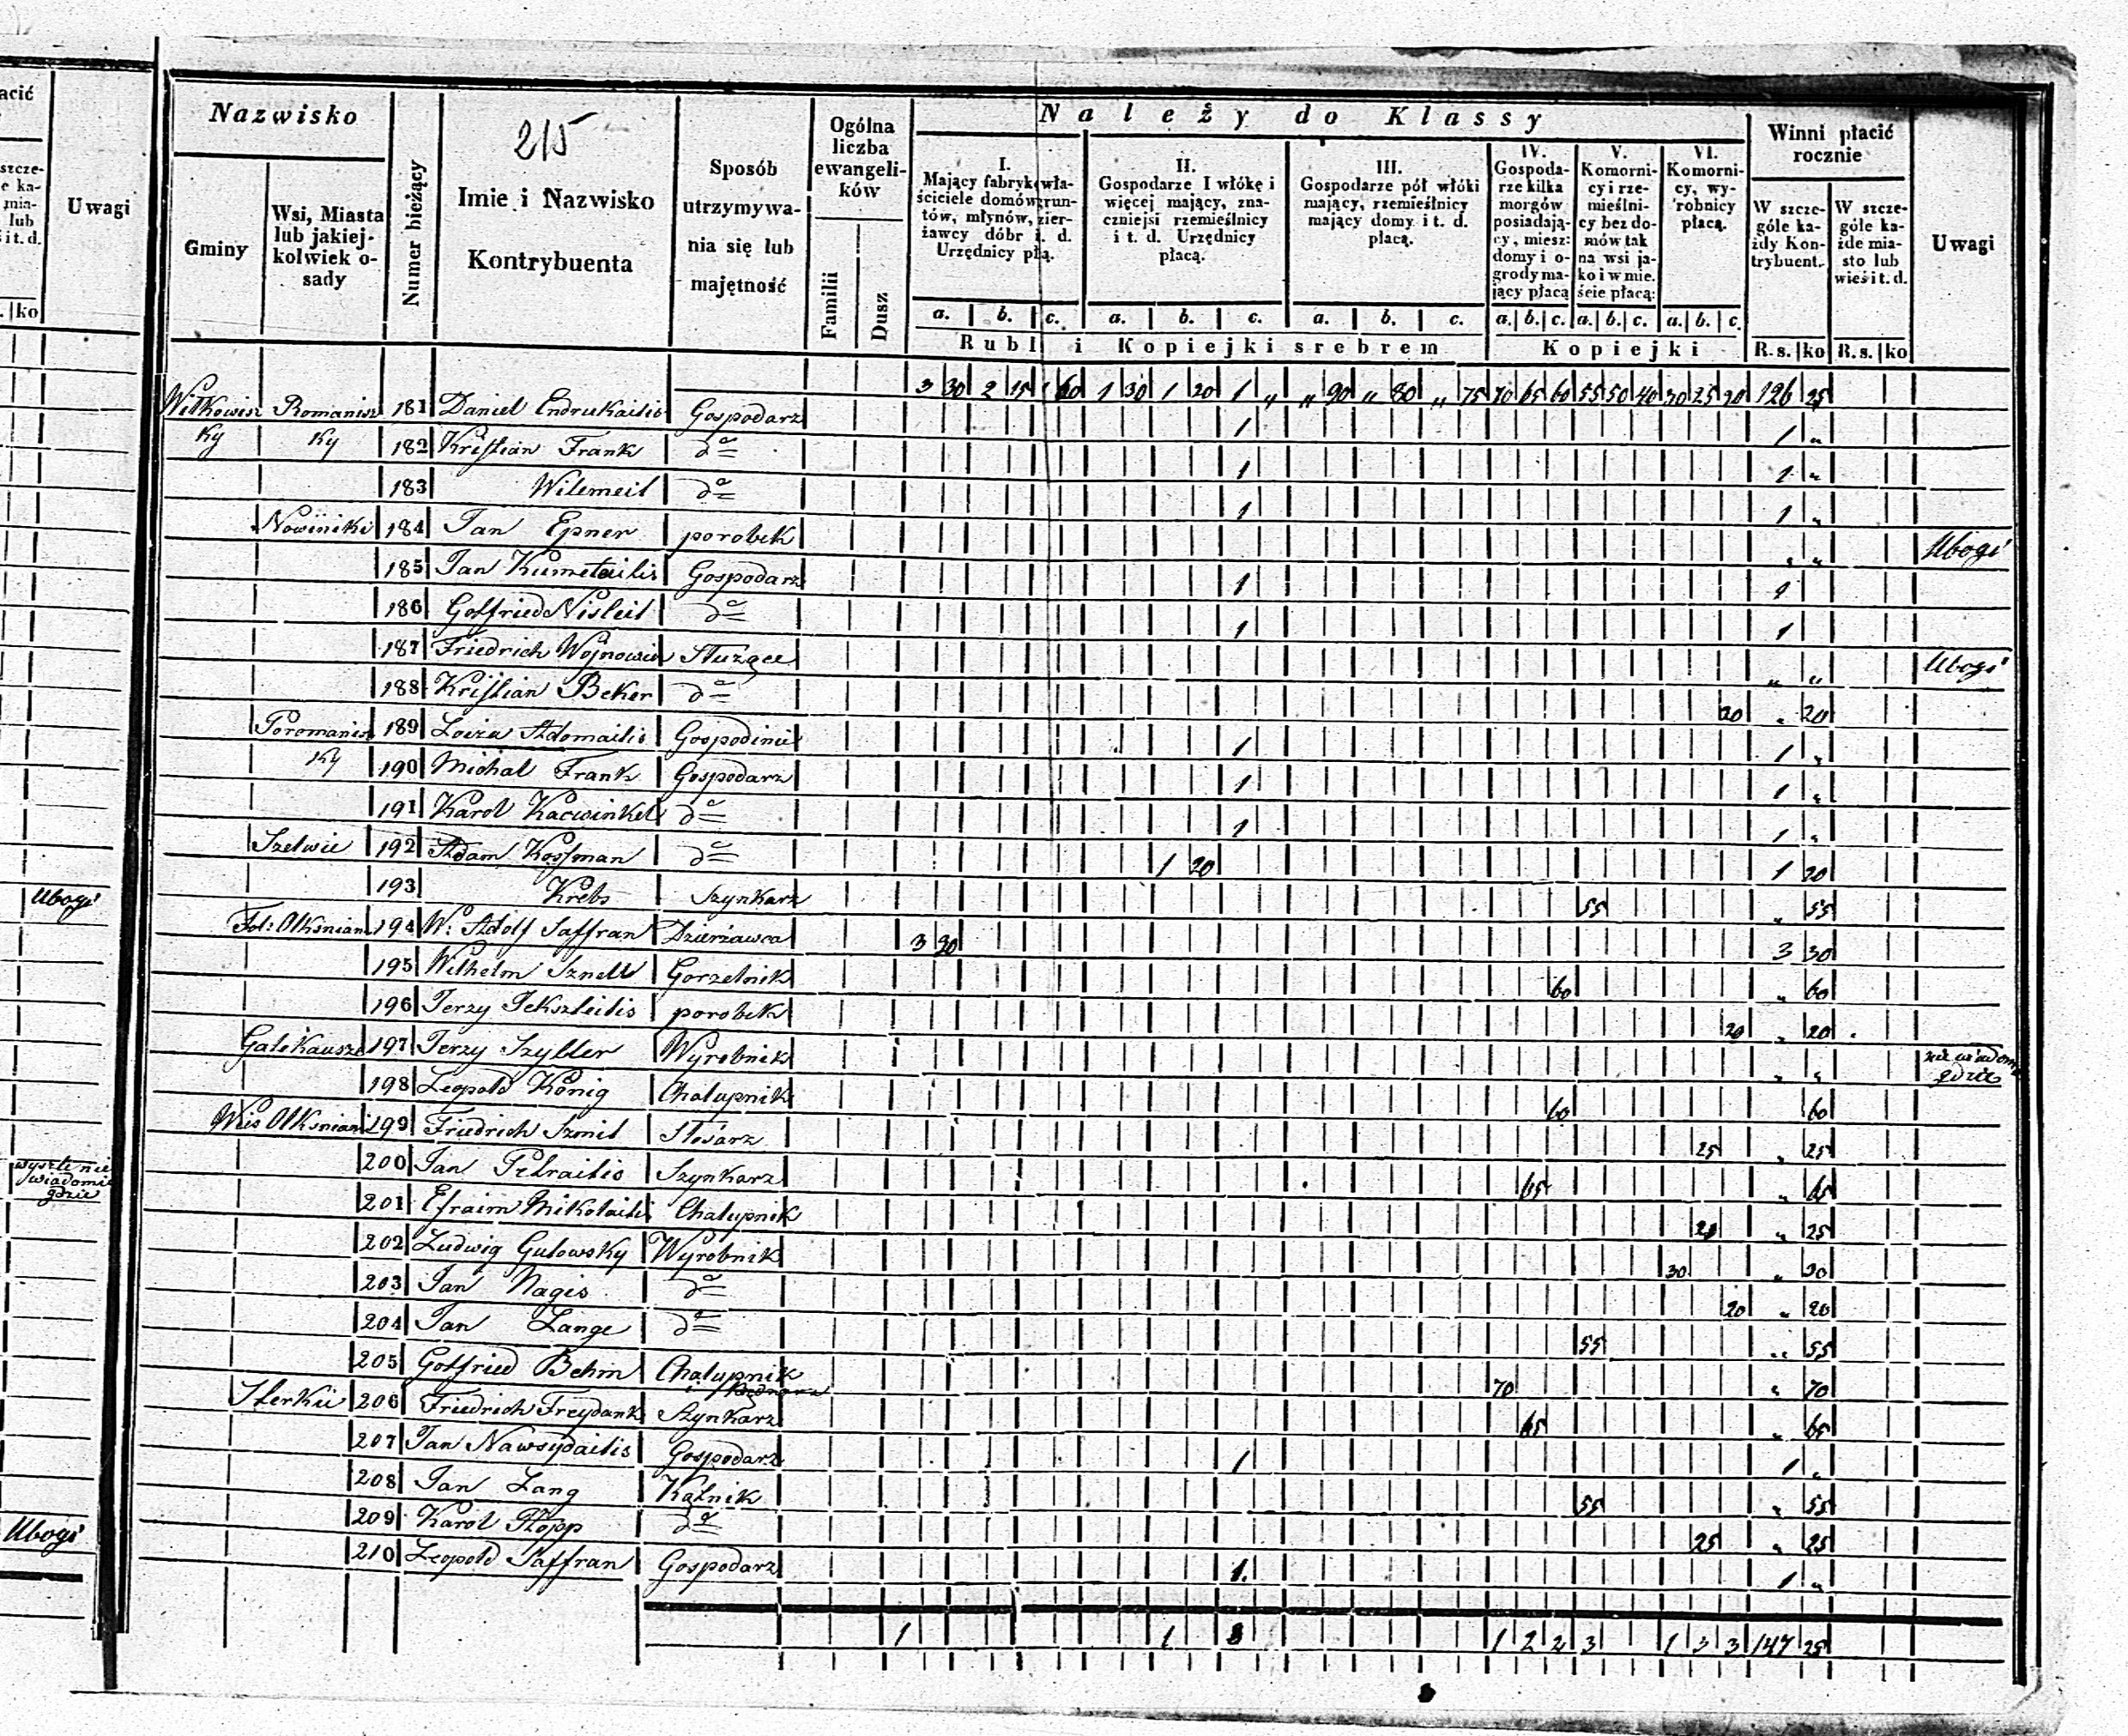 acić
szcze-
e ka-
mia-
lub
ś i t. d.
Uwagi
. ko
Ubogi
wyszli nie
wiadomo
gdzie
Ubogi
Nazwisko
Gminy
Wsi, Miasta
lub jakiej-
kolwiek o-
sady
Numer bieżący
215
Imie i Nazwisko
Kontrybuenta
Sposób
utrzymywa-
nia się lub
majętność
Ogólna
liczba
ewangeli-
ków
Familii
Dusz
Należy do Klassy
I.
Mający fabryk wła-
ściciele domów grun-
tów, młynów, dzier-
żawcy dóbr i. d.
Urzędnicy płą.
II.
Gospodarze I włókę i
więcej mający, zna-
czniejsi rzemieślnicy
i t. d. Urzędnicy
płacą.
III.
Gospodarze pół włóki
mający, rzemieślnicy
mający domy i t. d.
płacą.
IV.
Gospoda-
rze kilka
morgów
posiadają-
cy, miesz:
domy i o-
grody ma-
jący płacą
V.
Komorni-
cy i rze-
mieślni-
cy bez do-
mów tak
na wsi ja-
ko i w mie.
ście płacą:
VI.
Komorni-
cy, wy-
robnicy
płacą.
a. b. c. a. b. c. a. b. c. a. b. c. a. b. c. a. b. c.
Rubl i Kopiejki srebrem
Kopiejki
Winni płacić
rocznie
W szcze-
góle ka-
żdy Kon-
trybuent.
W szcze-
góle ka-
żde mia-
sto lub
wieś i t. d.
R.s. ko R.s. ko
Uwagi
3 30 2 15 1 60 1 30 1 20 1 „ „ 90 „ 80 „ 75 70 65 60 55 50 40 30 25 20 126 25
Witkowisz Romanisz 181 Daniel Endrukaitis Gospodarz 1 1 „
ky ky 182 Kristian Frank do 1 1 „
183 Wilemeit do 1 1 „
Nowiniki 184 Jan Epner porobek „ „ Ubogi
185 Jan Kumetaitis Gospodarz 1 1
186 Gotfried Nisleit do 1 1
187 Friedrich Wojnowicz Służące „ „ Ubogi
188 Kristian Beker do 20 „ 20
Poromanisz 189 Loiza Adomaitis Gospodinie 1 1 „
ky 190 Michal Frank Gospodarz 1 1 „
191 Karol Kacwinkel do 1 1 „
Szelwie 192 Adam Kossman do 1 20 1 20
193 Krebs Szynkarz 55 „ 55
Fol: Olksniany 194 W. Adolf Saffran Dzierżawca 3 30 3 30
195 Wilhelm Sznell Gorzelnik 60 „ 60
196 Jerzy Jekszteitis porobek 20 „ 20
Galekausze 197 Jerzy Szyller Wyrobnik „ „ nie wiadomo
gdzie
198 Leopold König Chałupnik 60 60
Wieś Olksniani 199 Friedrich Szmit Stolarz 25 „ 25
200 Jan Petraitis Szynkarz 65 „ 65
201 Efraim Mikolaitis Chałupnik 25 „ 25
202 Ludwig Gutowsky Wyrobnik 30 „ 30
203 Jan Nagis do 20 „ 20
204 Jan Lange do 55 „ 55
205 Gotfried Behm Chałupnik
i Bednarz 70 „ 70
Sterkie 206 Friedrich Freydank Szynkarz 65 „ 65
207 Jan Nawsydaitis Gospodarz 1 1 „
208 Jan Lang Kątnik 55 „ 55
209 Karol Kopp do 25 „ 25
210 Leopold Saffran Gospodarz 1. 1 „
1 1 8 1 2 2 3 1 3 3 147 25